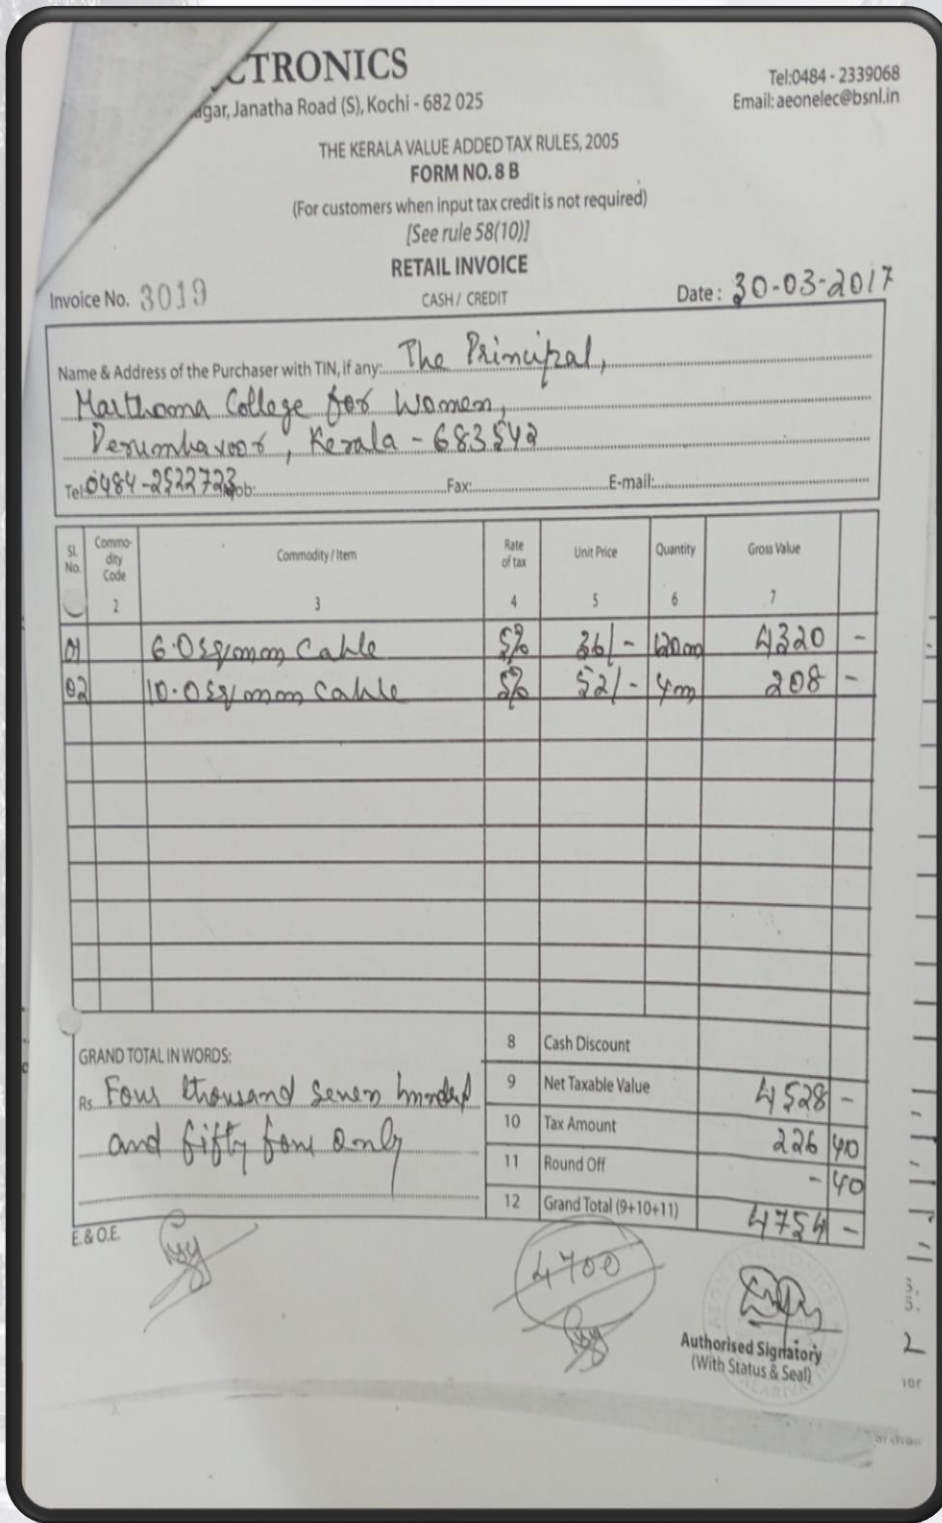 CTRONICS
agar, Janatha Road (S), Kochi - 682 025
Tel:0484 - 2339068
Email: aeonelec@bsnl.in
THE KERALA VALUE ADDED TAX RULES, 2005
FORM NO. 8 B
(For customers when input tax credit is not required)
[See rule 58(10)]
RETAIL INVOICE
Invoice No. 3019 CASH / CREDIT Date : 30-03-2017
Name & Address of the Purchaser with TIN, if any: The Principal,
Marthoma College for Women,
Perumbavoor, Kerala - 683542
Tel: 0484-2522723 Mob: Fax: E-mail:
Sl. No. Commo-dity Code Commodity / Item Rate of tax Unit Price Quantity Gross Value
2 3 4 5 6 7
01 6.0sq/mm Cable 5% 36/- 120m 4320 -
02 10.0sq/mm Cable 5% 52/- 4m 208 -
8 Cash Discount
GRAND TOTAL IN WORDS:
9 Net Taxable Value 4528 -
Rs. Four thousand seven hundred
10 Tax Amount 226 40
and fifty four only
11 Round Off - 40
12 Grand Total (9+10+11) 4754 -
E. & O.E.
4700
Authorised Signatory
(With Status & Seal)